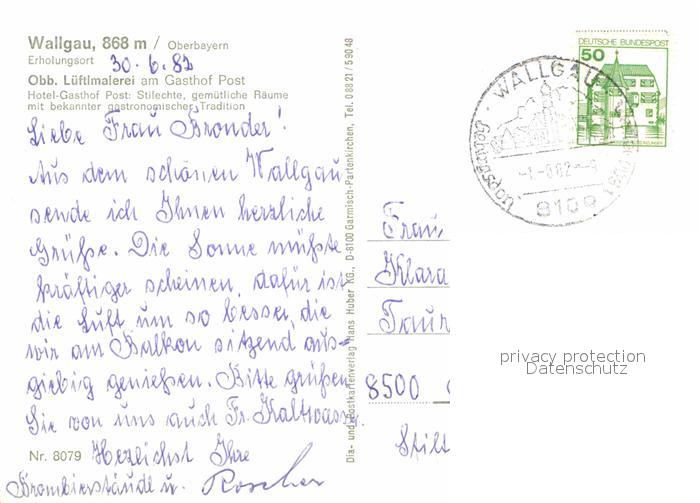 Wallgau, 868 m / Oberbayern
Erholungsort 30.6.82
Obb. Lüftlmalerei am Gasthof Post
Hotel-Gasthof Post: Stilechte, gemütliche Räume
mit bekannter gastronomischer Tradition
Liebe Frau Bronder!
Aus dem schönen Wallgau
sende ich Ihnen herzliche
Grüße. Die Sonne müßte
kräftiger scheinen, dafür ist
die Luft um so besser, die
wir am Balkon sitzend aus-
giebig genießen. Bitte grüßen
Sie von uns auch Fr. Kaltwasser.
Nr. 8079 Herzlichst Ihre
u. Roscher
Dia- und Postkartenverlag Hans Huber KG., D-8100 Garmisch-Partenkirchen, Tel. 0 88 21 / 5 90 48
DEUTSCHE BUNDESPOST
50
WALLGAU
8109
Frau
Klara
8500
Stift
privacy protection
Datenschutz